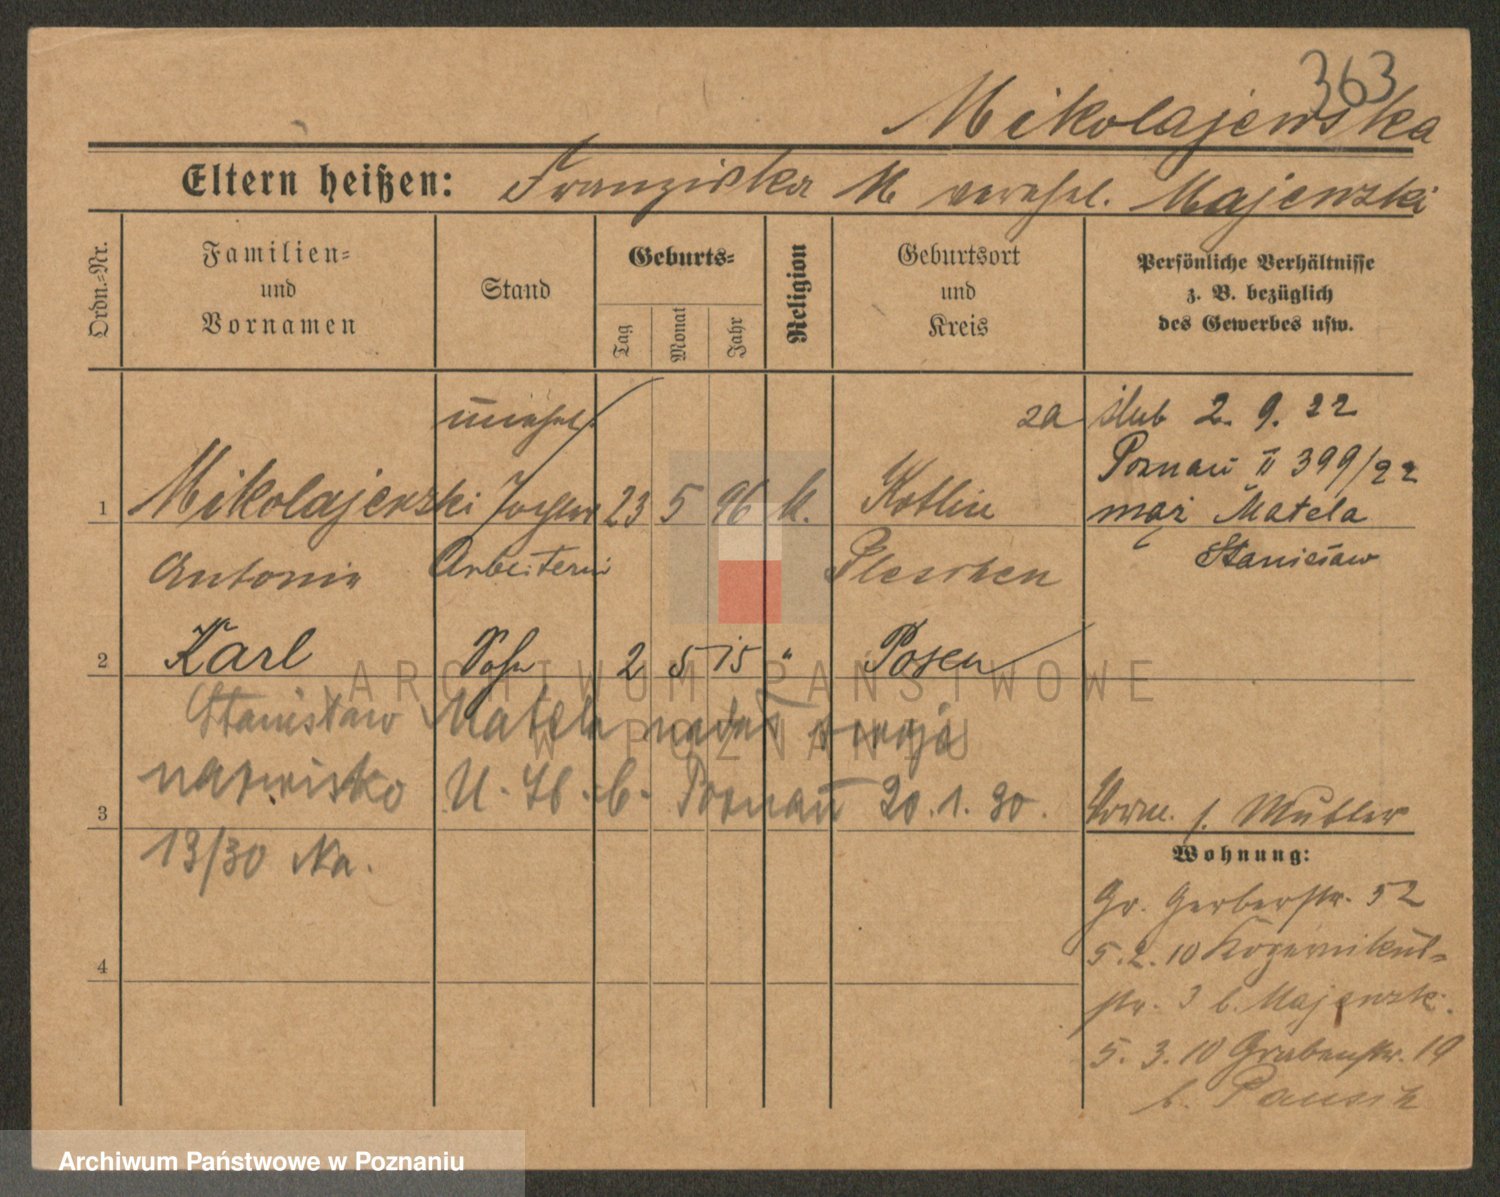 363
Mikolajewska
Eltern heißen: Franziska M verehel. Majewski
Ordn.=Nr.
Familien=
und
Vornamen
Stand
Geburts=
Tag
Monat
Jahr
Religion
Geburtsort
und
Kreis
Persönliche Verhältnisse
z. B. bezüglich
des Gewerbes usw.
unehel.
za ślub 2. 9. 22
Poznań II 399/22
1 Mikolajewski Tochter 23 5 96 k. Kotlin
mąż Matela
Antonie Arbeiterin Pleschen
Stanisław
2 Karl Sohn 2 5 15 " Posen
Stanisław Matela nadał swoje
nazwisko U. St. C. Poznań 20.1.30.
3
13/30 Na.
Vorm. f. Mutter
Wohnung:
Gr. Gerberstr. 52
5.2.10
str. 3 b. Majewsk.
5.3.10 Grabenstr. 19
b.
4
ARCHIWUM PAŃSTWOWE
W POZNANIU
Archiwum Państwowe w Poznaniu